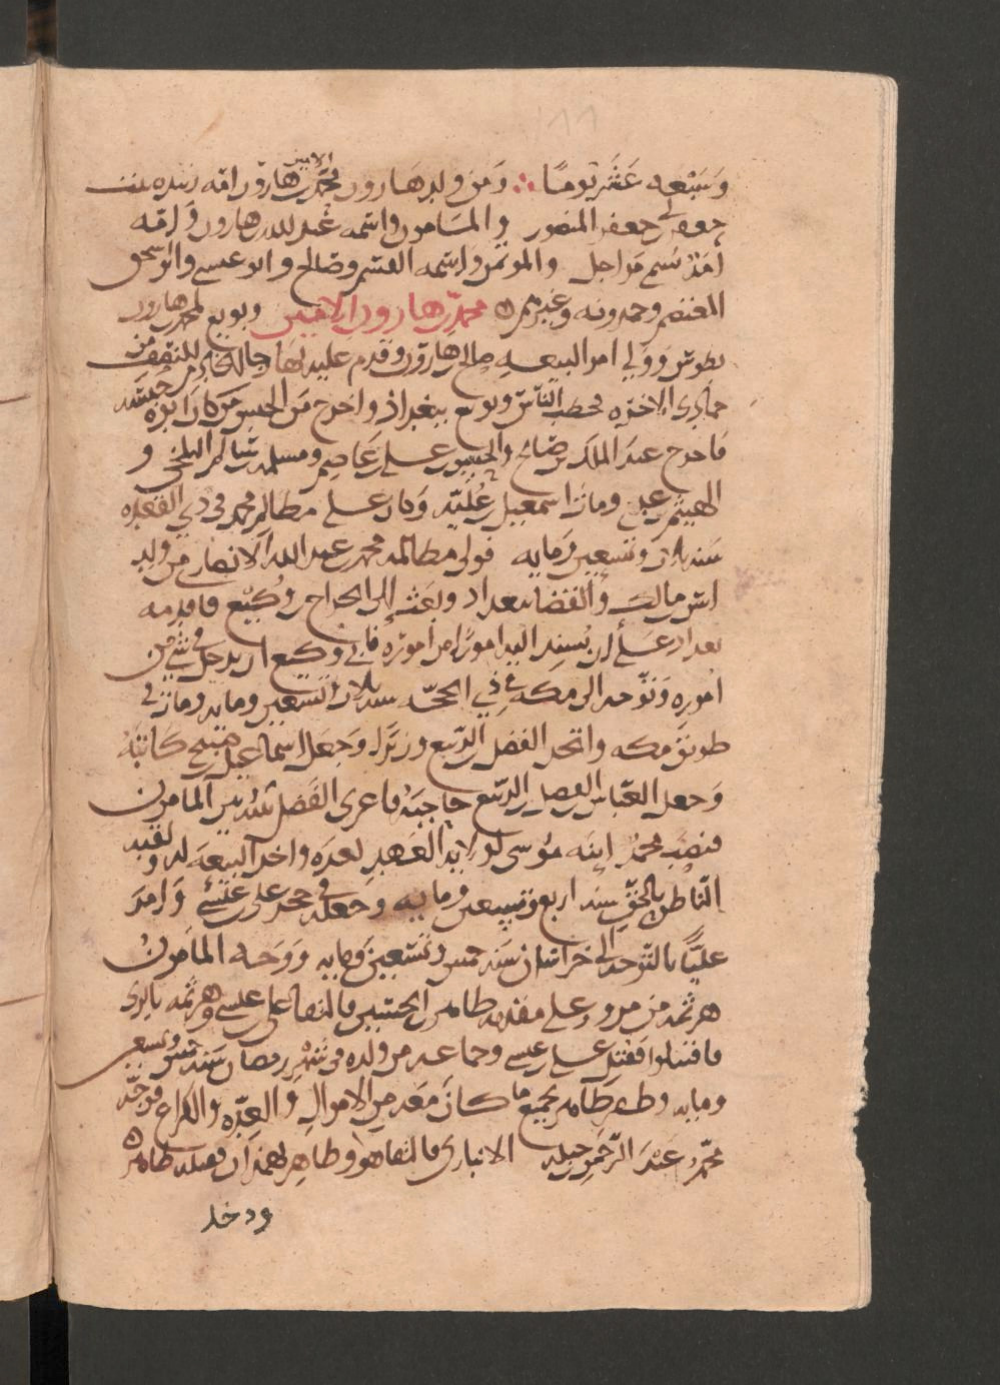 وسبعه عشر يوما ∴ ومن ولد هارون محمد الامين بن هارون امه زبيده بنت
جعفر بن ابي جعفر المنصور والمامون واسمه عبد الله بن هارون وامه
امة تسمى مراجل والموتمن واسمه القسم وصالح وابو عيسى وابو اسحق
المعتصم وحمدونه وغيرهم ۞ محمد بن هارون الامين وبويع لمحمد بن هارون
بطوس وولي امر البيعه صالح بن هارون وقدم عليه بها رجا الخادم للنصف من
جمادى الاخره فخطب الناس وبويع ببغداذ واخرج من الحبس من كان ابوه حبسه
فاخرج عبد الملك بن صالح والحسين بن علي بن عاصم ومسلم بن شاكر البلخي و
الهيثم بن عدي ومات اسمعيل بن عليه وكان على مظالم محمد في ذي القعده
سنه ثلاث وتسعين ومايه فولى مظالمه محمد بن عبد الله الانصاري من ولد
انس بن مالك والقضا ببغداد وبعث الى الجراح وكيع فاقدمه
بغداد على ان يسند اليه امورا من اموره فابى وكيع ان يدخل في شي من
اموره وتوجه الى مكه في ذي الحجه سنه ثلاث وتسعين ومايه ومات في
طريق مكه واتخذ الفضل بن الربيع وزيرا وجعل اسماعيل بن صبيح كاتبه
وجعل العباس بن الفضل بن الربيع حاجبه فاغرى الفضل بينه وبين المامون
فنصب محمد ابنه موسى لولايه العهد بعده واخذ البيعه له ولقبه
الناطق بالحق سنه اربع وتسعين ومايه وجعله في حجر علي بن عيسى وامر
عليا بالتوجه الى خراسان سنه خمس وتسعين ومايه ووجه المامون
هرثمه من مرو وعلى مقدمته طاهر بن الحسين فالتقا علي بن عيسى وهرثمه بالري
فاقتتلوا فقتل علي بن عيسى وجماعه من ولده في شهر رمضان سنه خمس وتسعين
ومايه وظفر طاهر بجميع ما كان معه من الاموال والعده والكراع فوجه
محمد عبد الرحمن بن جبله الانباري فالتقا هو وطاهر بهمذان فقتله طاهر ۞
ودخل